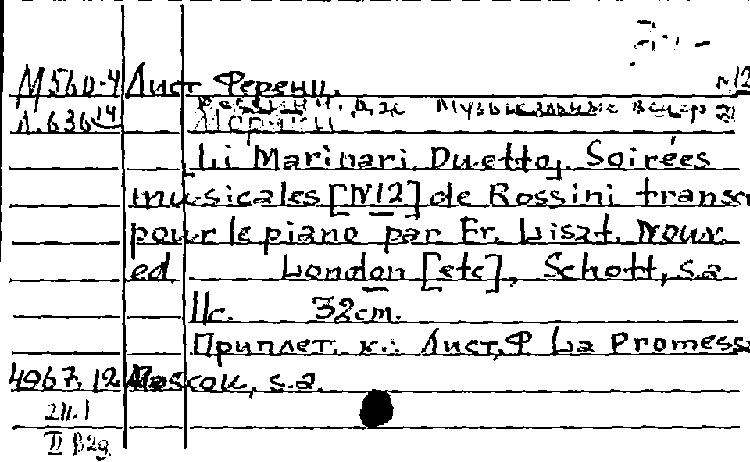 М560-4 Лист Ференц. №12
Л.636 14 Россини, Дж. Музыкальные вечера
Li Marinari. Duetto. Soirées
musicales [N12] de Rossini transc
pour le piano par Fr. Liszt. Nouv.
ed London [etc], Schott, s.a
11c. 32cm.
Приплет. к.: Лист, Ф La Promess
4967.12 Moscou, s.a.
2Н.1
II В2д